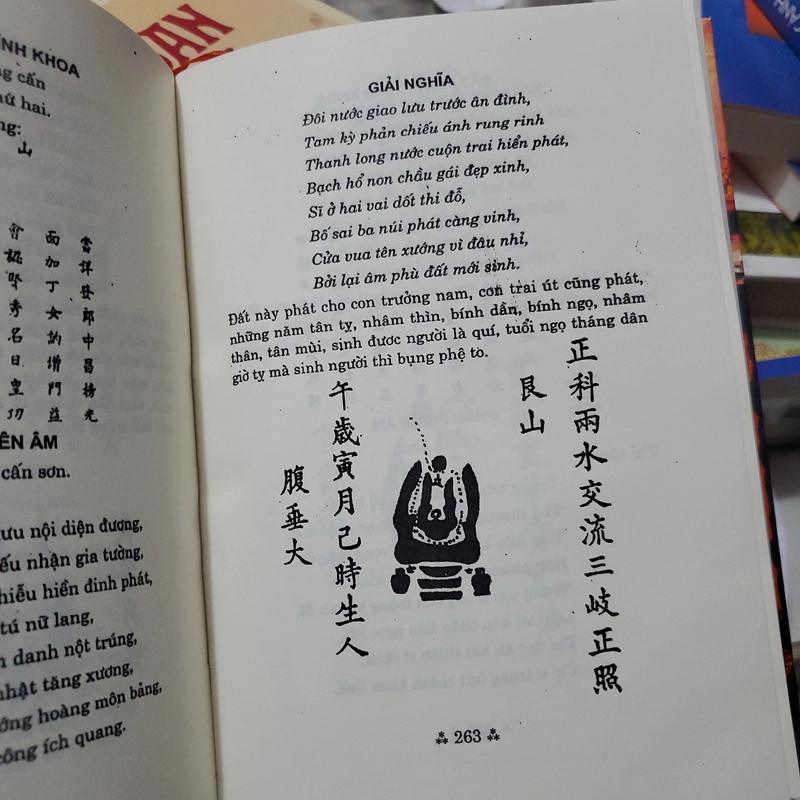 ÍNH KHOA
g cấn
ứ hai.
ng:
山
當詳發郎中昌榜光
面加丁女訥增門益
秀名日皇切
ÊN ÂM
cấn sơn.
ưu nội diện đượng,
ếu nhận gia tường,
hiễu hiền đinh phát,
tú nữ lang,
n danh nột trúng,
nhật tăng xương,
ớng hoàng môn bảng,
công ích quang.
GIẢI NGHĨA
Đôi nước giao lưu trước ân đình,
Tam kỳ phản chiếu ánh rung rinh
Thanh long nước cuộn trai hiển phát,
Bạch hổ non chầu gái đẹp xinh,
Sĩ ở hai vai dốt thi đỗ,
Bố sai ba núi phát càng vinh,
Cửa vua tên xướng vì đâu nhỉ,
Bởi lại âm phù đất mới sinh.
Đất này phát cho con trưởng nam, con trai út cũng phát,
những năm tân tỵ, nhâm thìn, bính dần, bính ngọ, nhâm
thân, tân mùi, sinh đươc người là quí, tuổi ngọ tháng dân
giờ tỵ mà sinh người thì bụng phệ to.
正科兩水交流三岐正照
艮山
午歲寅月己時生人
腹垂大
263